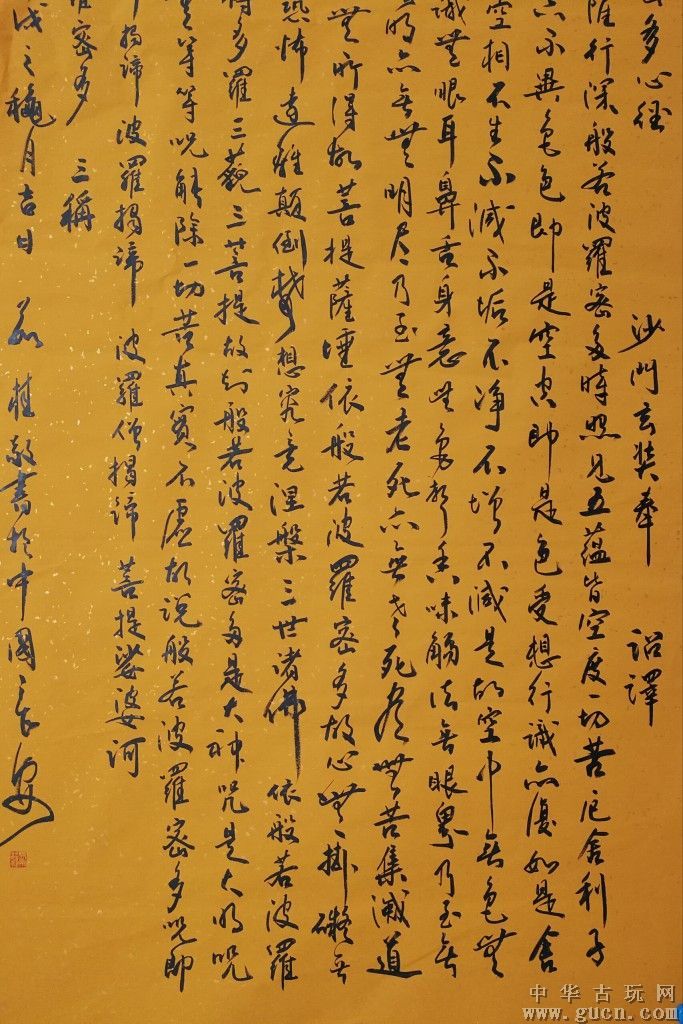 多心經 沙門玄奘奉 詔譯
行深般若波羅密多時照見五蘊皆空度一切苦厄舍利子
不異色色即是空空即是色受想行識亦復如是舍
空相不生不滅不垢不淨不增不減是故空中無色無
識無眼耳鼻舌身意無色聲香味觸法無眼界乃至無
明亦無無明盡乃至無老死亦無老死盡無苦集滅道
無所得故菩提薩埵依般若波羅密多故心無掛礙無
恐怖遠離顛倒夢想究竟涅槃三世諸佛依般若波羅
多羅三藐三菩提故知般若波羅密多是大神咒是大明咒
無等等咒能除一切苦真實不虛故說般若波羅密多咒即
揭諦 波羅揭諦 波羅僧揭諦 菩提娑婆訶
密多 三稱
戌之穐月吉日 茹桂敬書於中國長安
中华古玩网
www.gucn.com